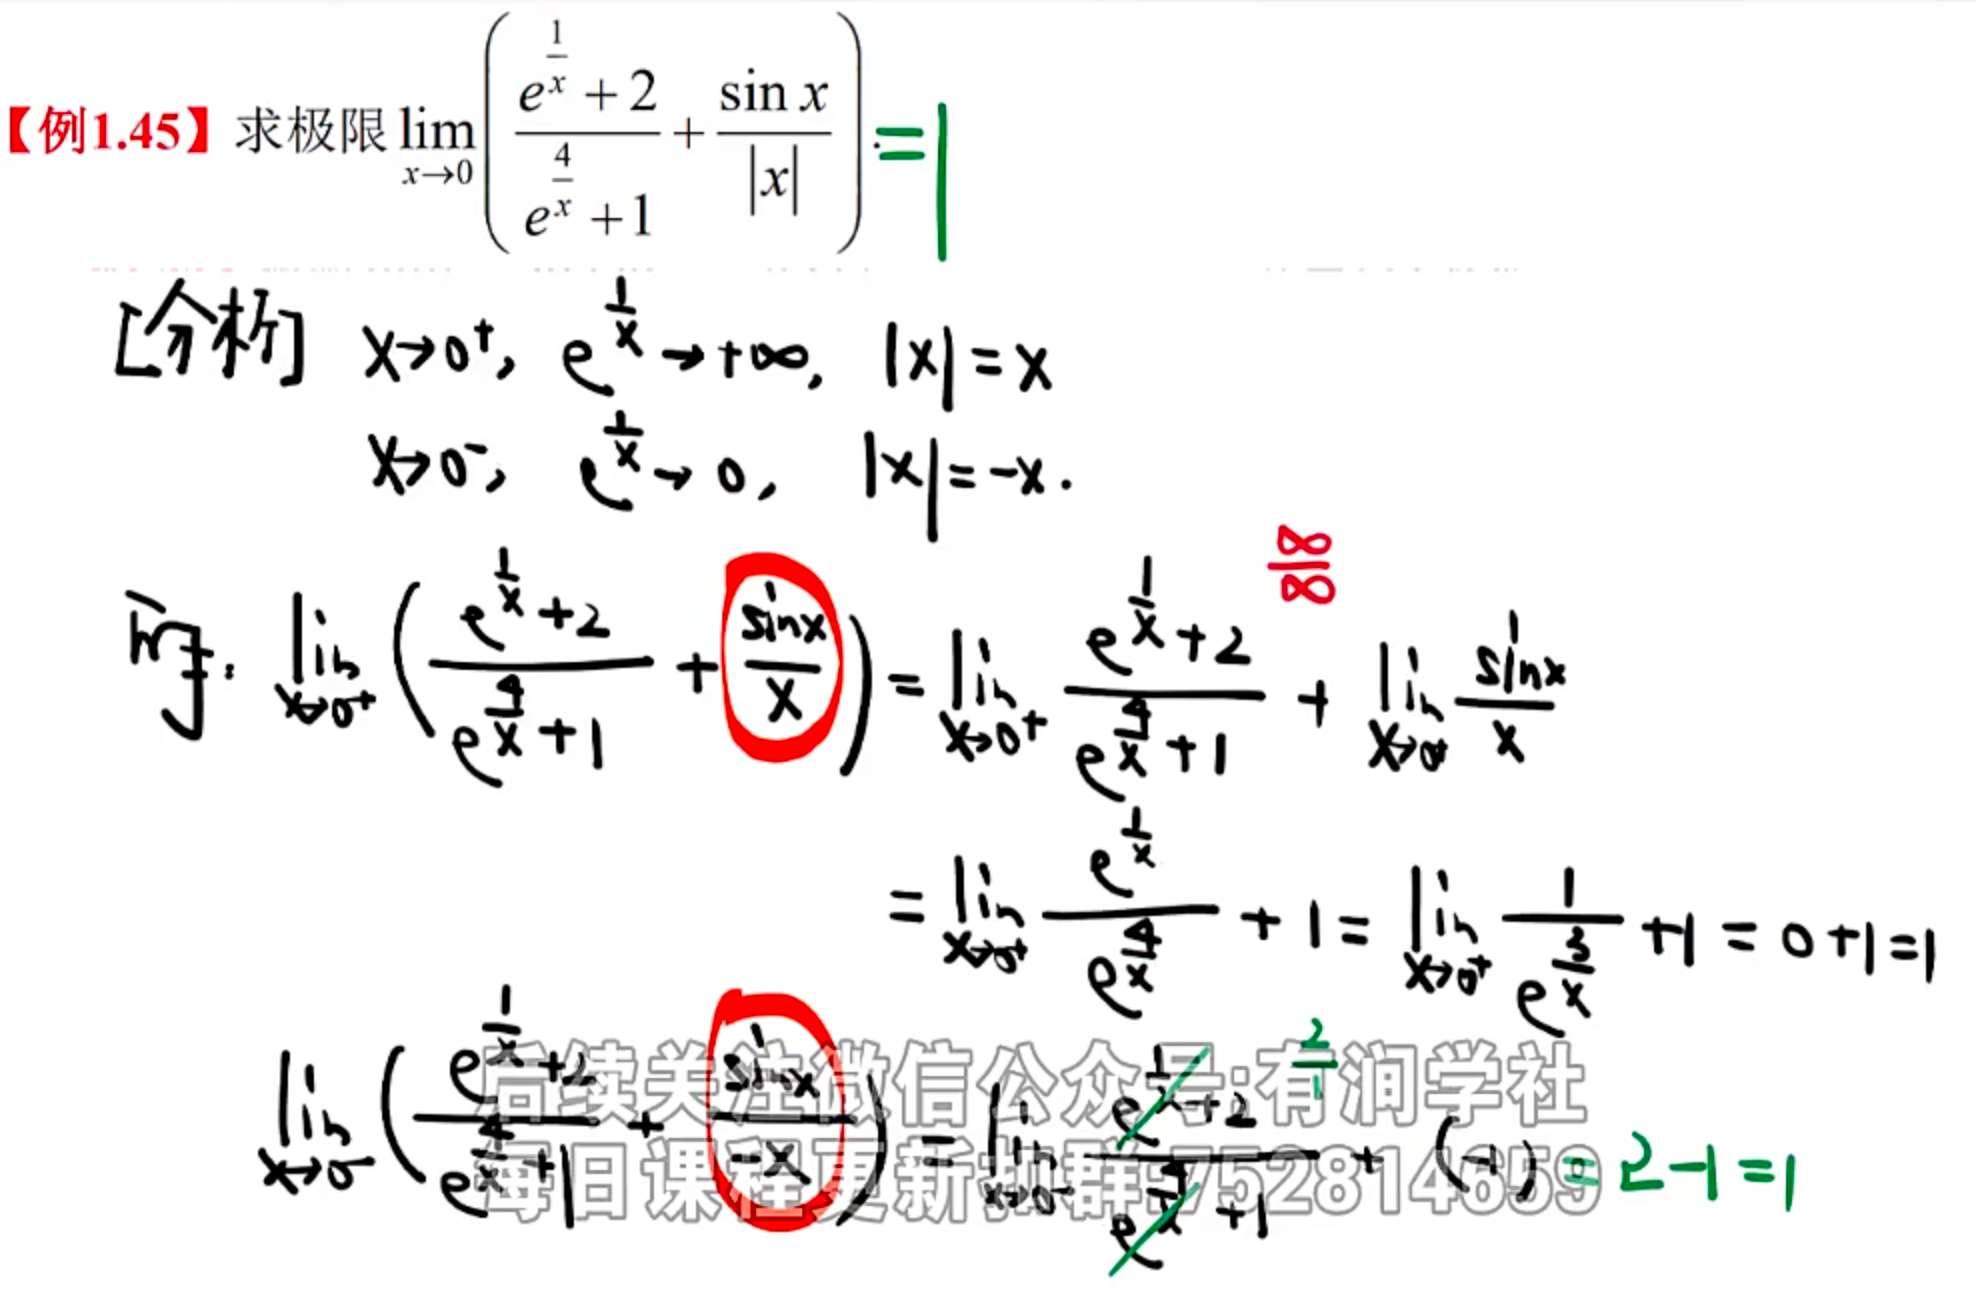 【例1.45】求极限 lim x→0 ( (e^(1/x) + 2)/(e^(4/x) + 1) + sin x/|x| ). = 1
[分析] x→0⁺, e^(1/x) → +∞, |x| = x
x→0⁻, e^(1/x) → 0, |x| = -x.
∞/∞
lim x→0⁺ ( (e^(1/x) + 2)/(e^(4/x) + 1) + sinx/x ) = lim x→0⁺ (e^(1/x) + 2)/(e^(4/x) + 1) + lim x→0⁺ sinx/x
= lim x→0⁺ e^(1/x)/e^(4/x) + 1 = lim x→0⁺ 1/e^(3/x) + 1 = 0 + 1 = 1
2/1
lim x→0⁻ ( (e^(1/x) + 2)/(e^(4/x) + 1) + sinx/-x ) = lim x→0⁻ (e^(1/x) + 2)/(e^(4/x) + 1) + (-1) = 2 - 1 = 1
后续关注微信公众号:有润学社
每日课程更新扣群:752814659